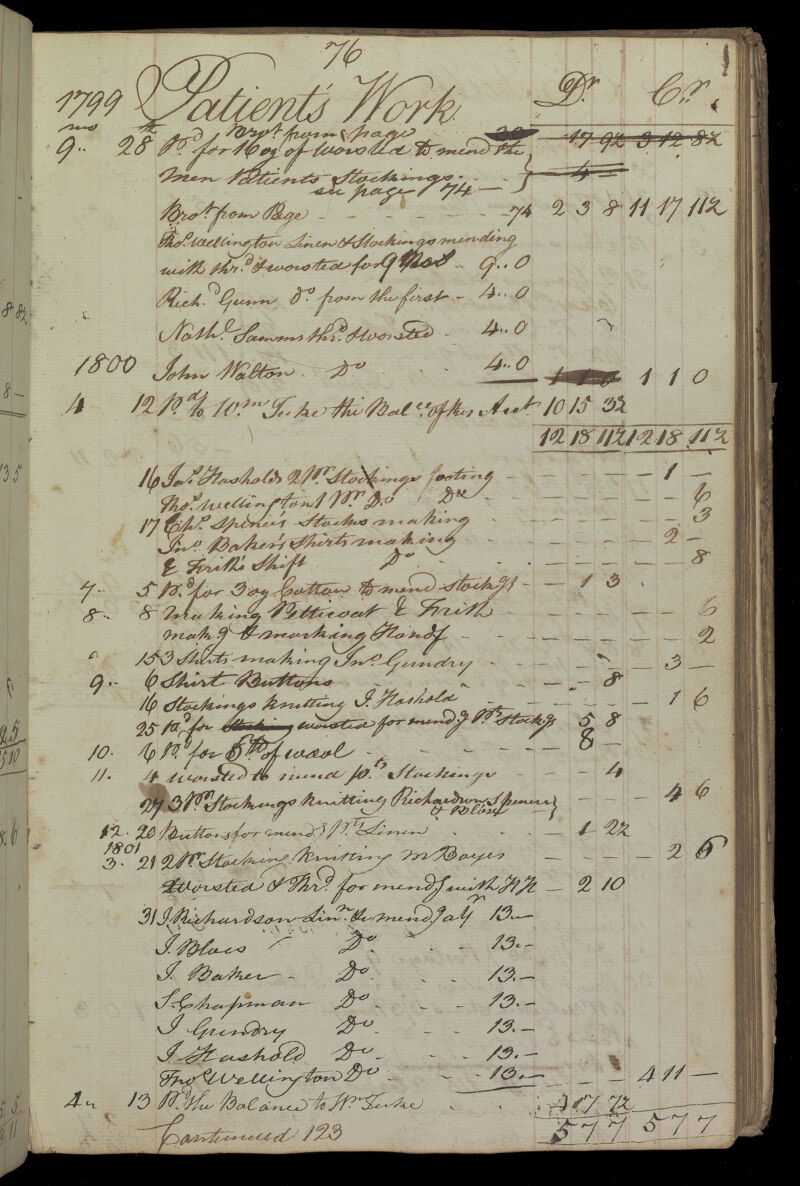 76
1799 Patient's Work Dr. Cr.
mo
Brot. from page 20 17 9½ 3 12 8½
9.. 28th Pd. for 16 oz of worsted to mend the
Men Patients Stockings.. } 4 —
see page 74 —
Brot. from Page - - - - - 74 2 3 8 11 17 11½
Thos. Wellington Linen & Stockings mending
with thrd. & worsted for 9 Mos .. 9..0
Richd. Gunn Do. from the first - 4..0
Nathl. Samms thrd. & worsted - 4..0
1800
John Walton. Do 4..0 1 1 0 1 1 0
4 12 Pd. to Wm. Tuke the Balce. of his Acct 10 15 3½
12 18 11½ 12 18 11½
16 Jas. Hasholds 2 Pr. Stockings footing - - - - - 1 —
Thos. Wellington 1 Pr. Do Do - - - - - 6
17 Chs. Spence's Stocks making - - - - - 3
Jno. Baker's Shirts making - - - - 2 —
E Frith's Shift Do - - - - - 8
7.. 5 Pd. for 3 oz Cotton to mend stockgs - - 1 3
8.. 8 making Petticoat E Frith 6
makg & marking Handf - - - - - 2
15 3 Shirts making Jno. Gundry - - - - - 3 —
9.. 6 Shirt Buttons - - 8
16 Stockings knitting J. Hashold - - - - - 1 6
25 Pd. for worsted for mendg Pts. Stockgs 5 8
10. 6 Pd. for 6 lb of wool - - - - - 8 —
11. 4 worsted to mend pts. Stockings - - - 4
27 3 Pr. Stockings knitting Richardson Spencer } 4 6
& Bloes
12. 20 Buttons for mendg Pts. Linen - 1 2½
1801
3. 21 2 Pr. Stocking knitting M Boyes - - - - 2 6
Worsted & Thrd. for mendg with HH - 2 10
31 J. Richardson Linn. &c mendg a Yr 13.—
J. Bloes Do. - - - 13.—
J. Baker - Do. - - - 13.—
S. Chapman Do - - - 13.—
J Gundry Do - - - 13.—
J Hashold Do - - - 13.—
Thos. Wellington Do - - - 13.— - - - 4 11 —
4.. 13 Pd. the Balance to Wm Tuke . . 4 17 7½
5 7 7 5 7 7
Continued 123